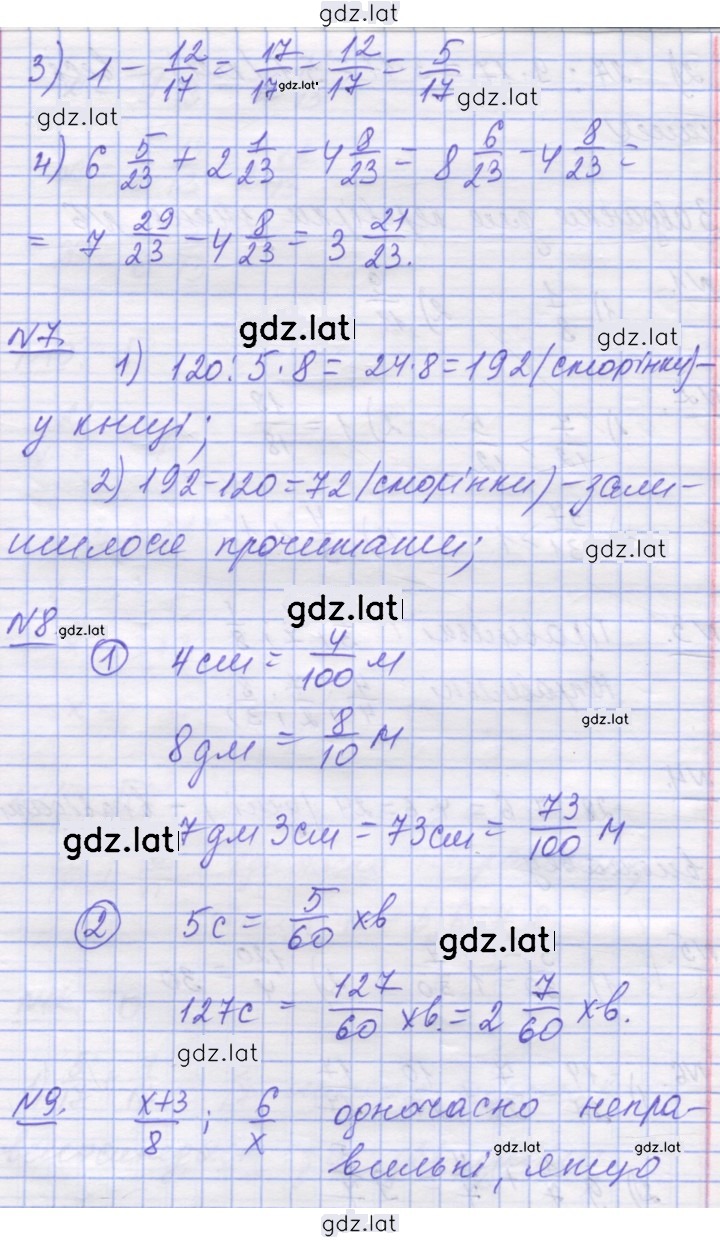 gdz.lat
3) 1 - 12/17 = 17/17 - 12/17 = 5/17
gdz.lat
gdz.lat
gdz.lat
4) 6 5/23 + 2 1/23 - 4 8/23 = 8 6/23 - 4 8/23 =
= 7 29/23 - 4 8/23 = 3 21/23.
gdz.lat
gdz.lat
№7.
1) 120:5·8= 24·8=192(сторінки)-
у книзі;
2) 192-120=72(сторінки)-зали-
шилося прочитати;
gdz.lat
gdz.lat
№8
gdz.lat
1 4см = 4/100 м
gdz.lat
8дм = 8/10 м
gdz.lat
7дм 3см = 73см = 73/100 м
2 5с = 5/60 хв
gdz.lat
127с = 127/60 хв. = 2 7/60 хв.
gdz.lat
№9. x+3/8; 6/x одночасно непра-
gdz.lat
gdz.lat
вильні, якщо
gdz.lat